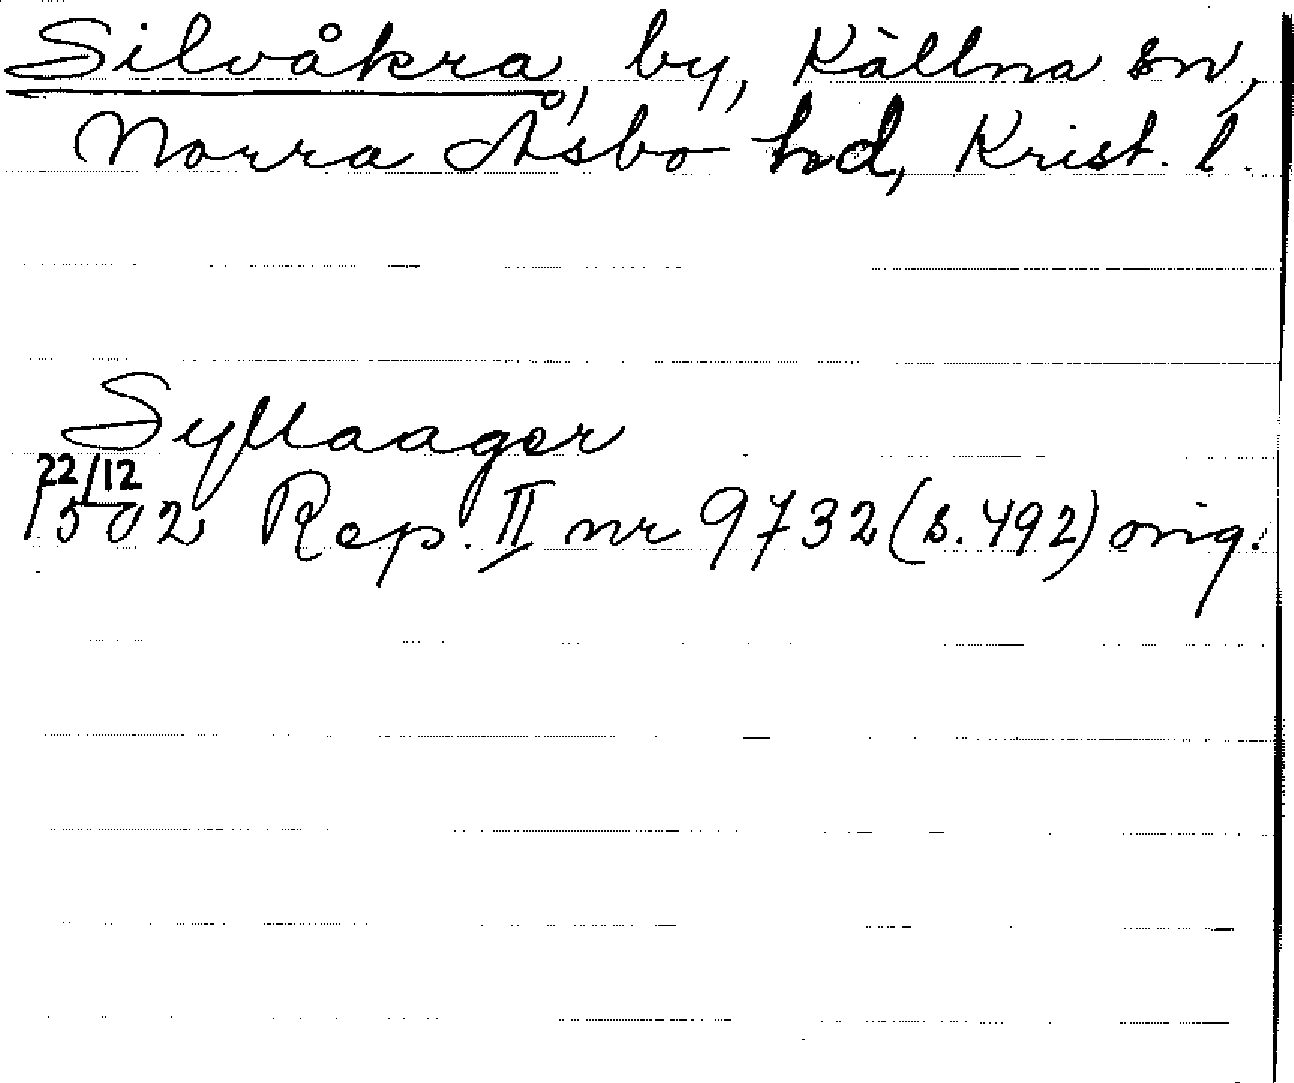 Silvåkra, by, Källna sn,
Norra Åsbo hd, Krist. l.
Syllaager
22/12
1502 Rep. II nr 9732 (s. 492) orig.